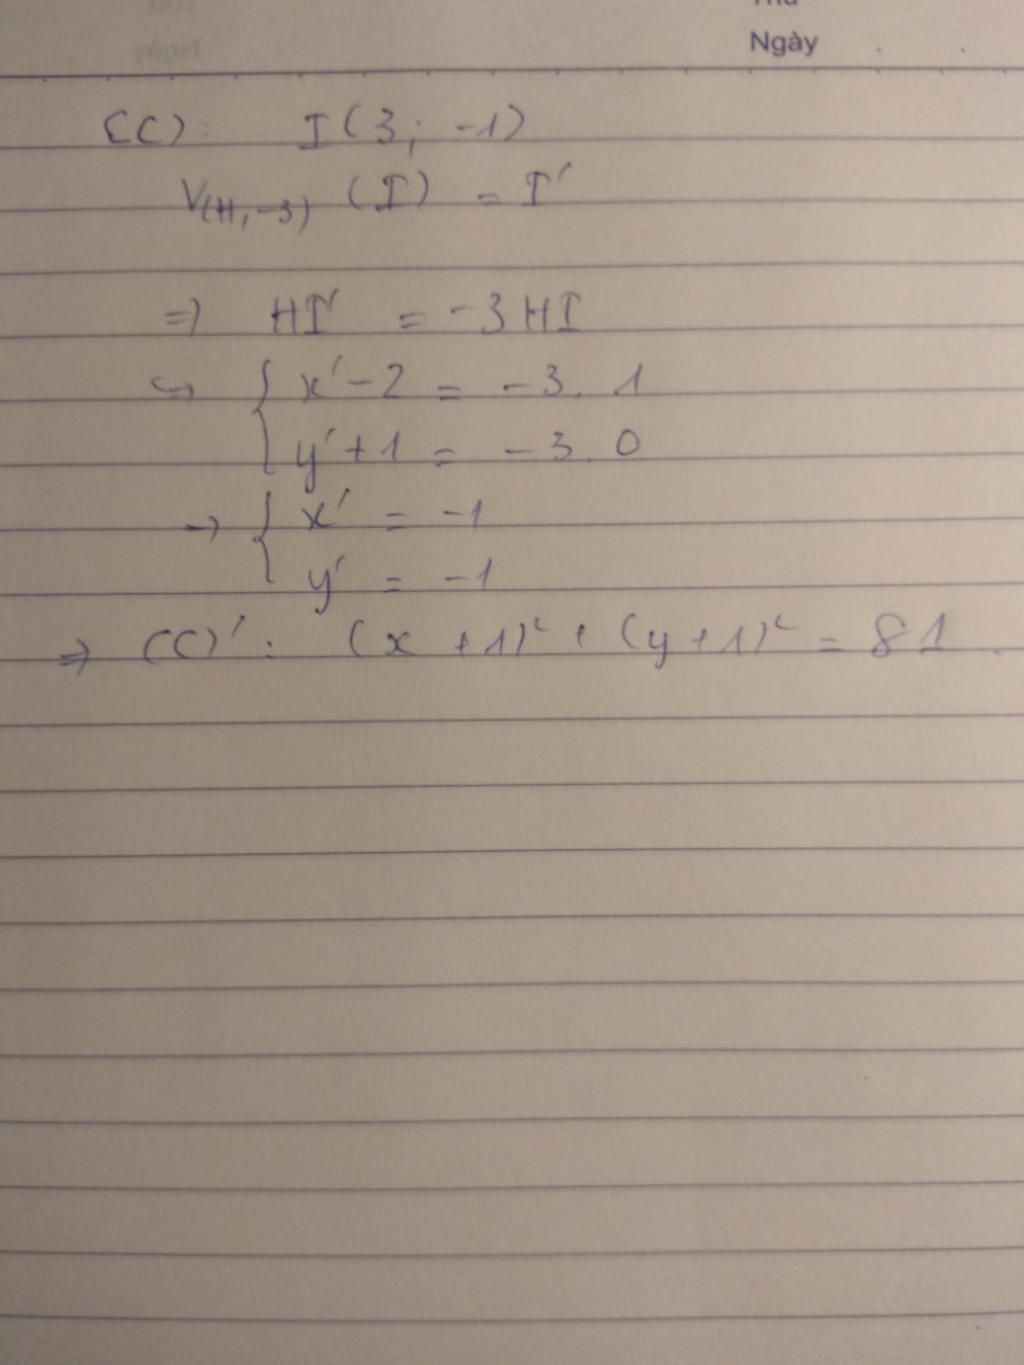 Thứ
Ngày
(C): I(3; -1)
V(H,-3) (I) = I'
=> HI' = -3HI
↪ { x'-2 = -3. 1
y'+1 = -3. 0
→ { x' = -1
y' = -1
=> (C)': (x +1)² + (y+1)² = 81.